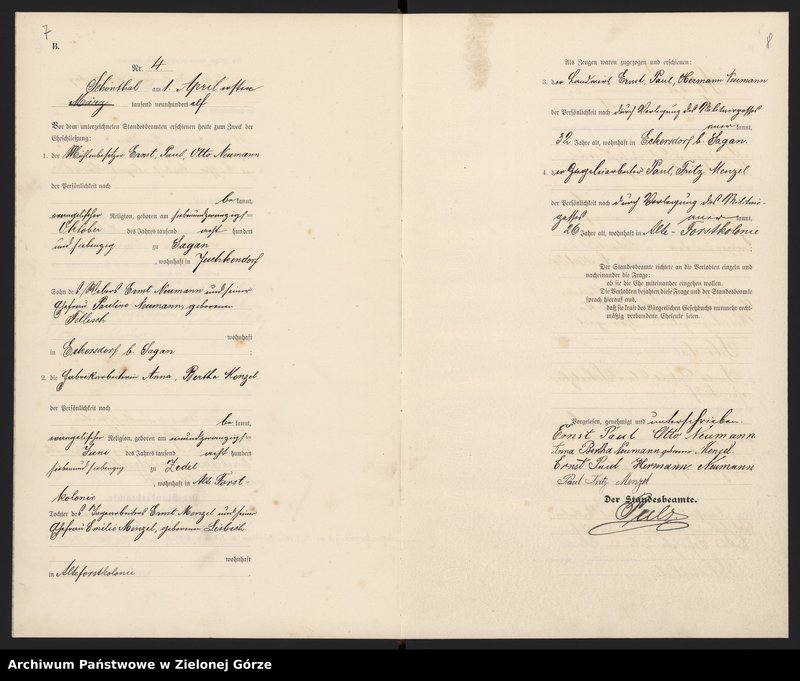 7
B.
Nr. 4
Schönthal am 1. April
März tausend neunhundert elf
Vor dem unterzeichneten Standesbeamten erschienen heute zum Zweck der
Eheschließung:
1. der Mühlenbesitzer Ernst, Paul, Otto Neumann
der Persönlichkeit nach
be kannt,
evangelischer Religion, geboren am siebenundzwanzigs=
Oktober des Jahres tausend acht hundert
und siebenzig zu Sagan
, wohnhaft in
Sohn des Webers Ernst Neumann und seiner
Ehefrau Pauline Neumann, geborenen
wohnhaft
in Eckersdorf b. Sagan ;
2. die Fabrikarbeiterin Anna, Bertha Menzel
der Persönlichkeit nach
be kannt,
evangelischer Religion, geboren am
Juni des Jahres tausend acht hundert
siebenundsiebenzig zu Zedel
, wohnhaft in Alte Forst-
kolonie
Tochter des Ernst Menzel und seiner
Ehefrau Emilie Menzel, geborenen Liebich
wohnhaft
in Alteforstkolonie .
8
Als Zeugen waren zugezogen und erschienen:
3. der Landwirt Ernst, Paul, Hermann Neumann
der Persönlichkeit nach durch Vorlegung des Militairpasses
aner kannt,
32 Jahre alt, wohnhaft in Eckersdorf b. Sagan
4. der Paul, Fritz Menzel
der Persönlichkeit nach durch Vorlegung des Militai-
aner kannt,
26 Jahre alt, wohnhaft in Alte-Forstkolonie
Der Standesbeamte richtete an die Verlobten einzeln und
nacheinander die Frage:
ob sie die Ehe miteinander eingehen wollen.
Die Verlobten bejahten diese Frage und der Standesbeamte
sprach hierauf aus,
daß sie kraft des Bürgerlichen Gesetzbuchs nunmehr recht-
mäßig verbundene Eheleute seien.
Vorgelesen, genehmigt und unterschrieben
Ernst Paul Otto Neumann
Anna Bertha Neumann geborene Menzel
Ernst Paul Hermann Neumann
Paul Fritz Menzel
Der Standesbeamte.
Archiwum Państwowe w Zielonej Górze